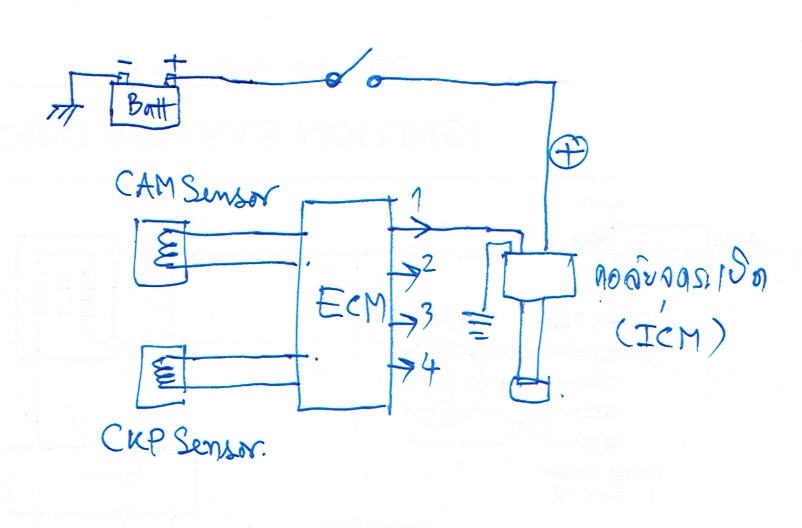 - +
Batt
+
CAM Sensor
1
2
ECM
3
4
คอล์ยจุดระเบิด
(ICM)
CKP Sensor.